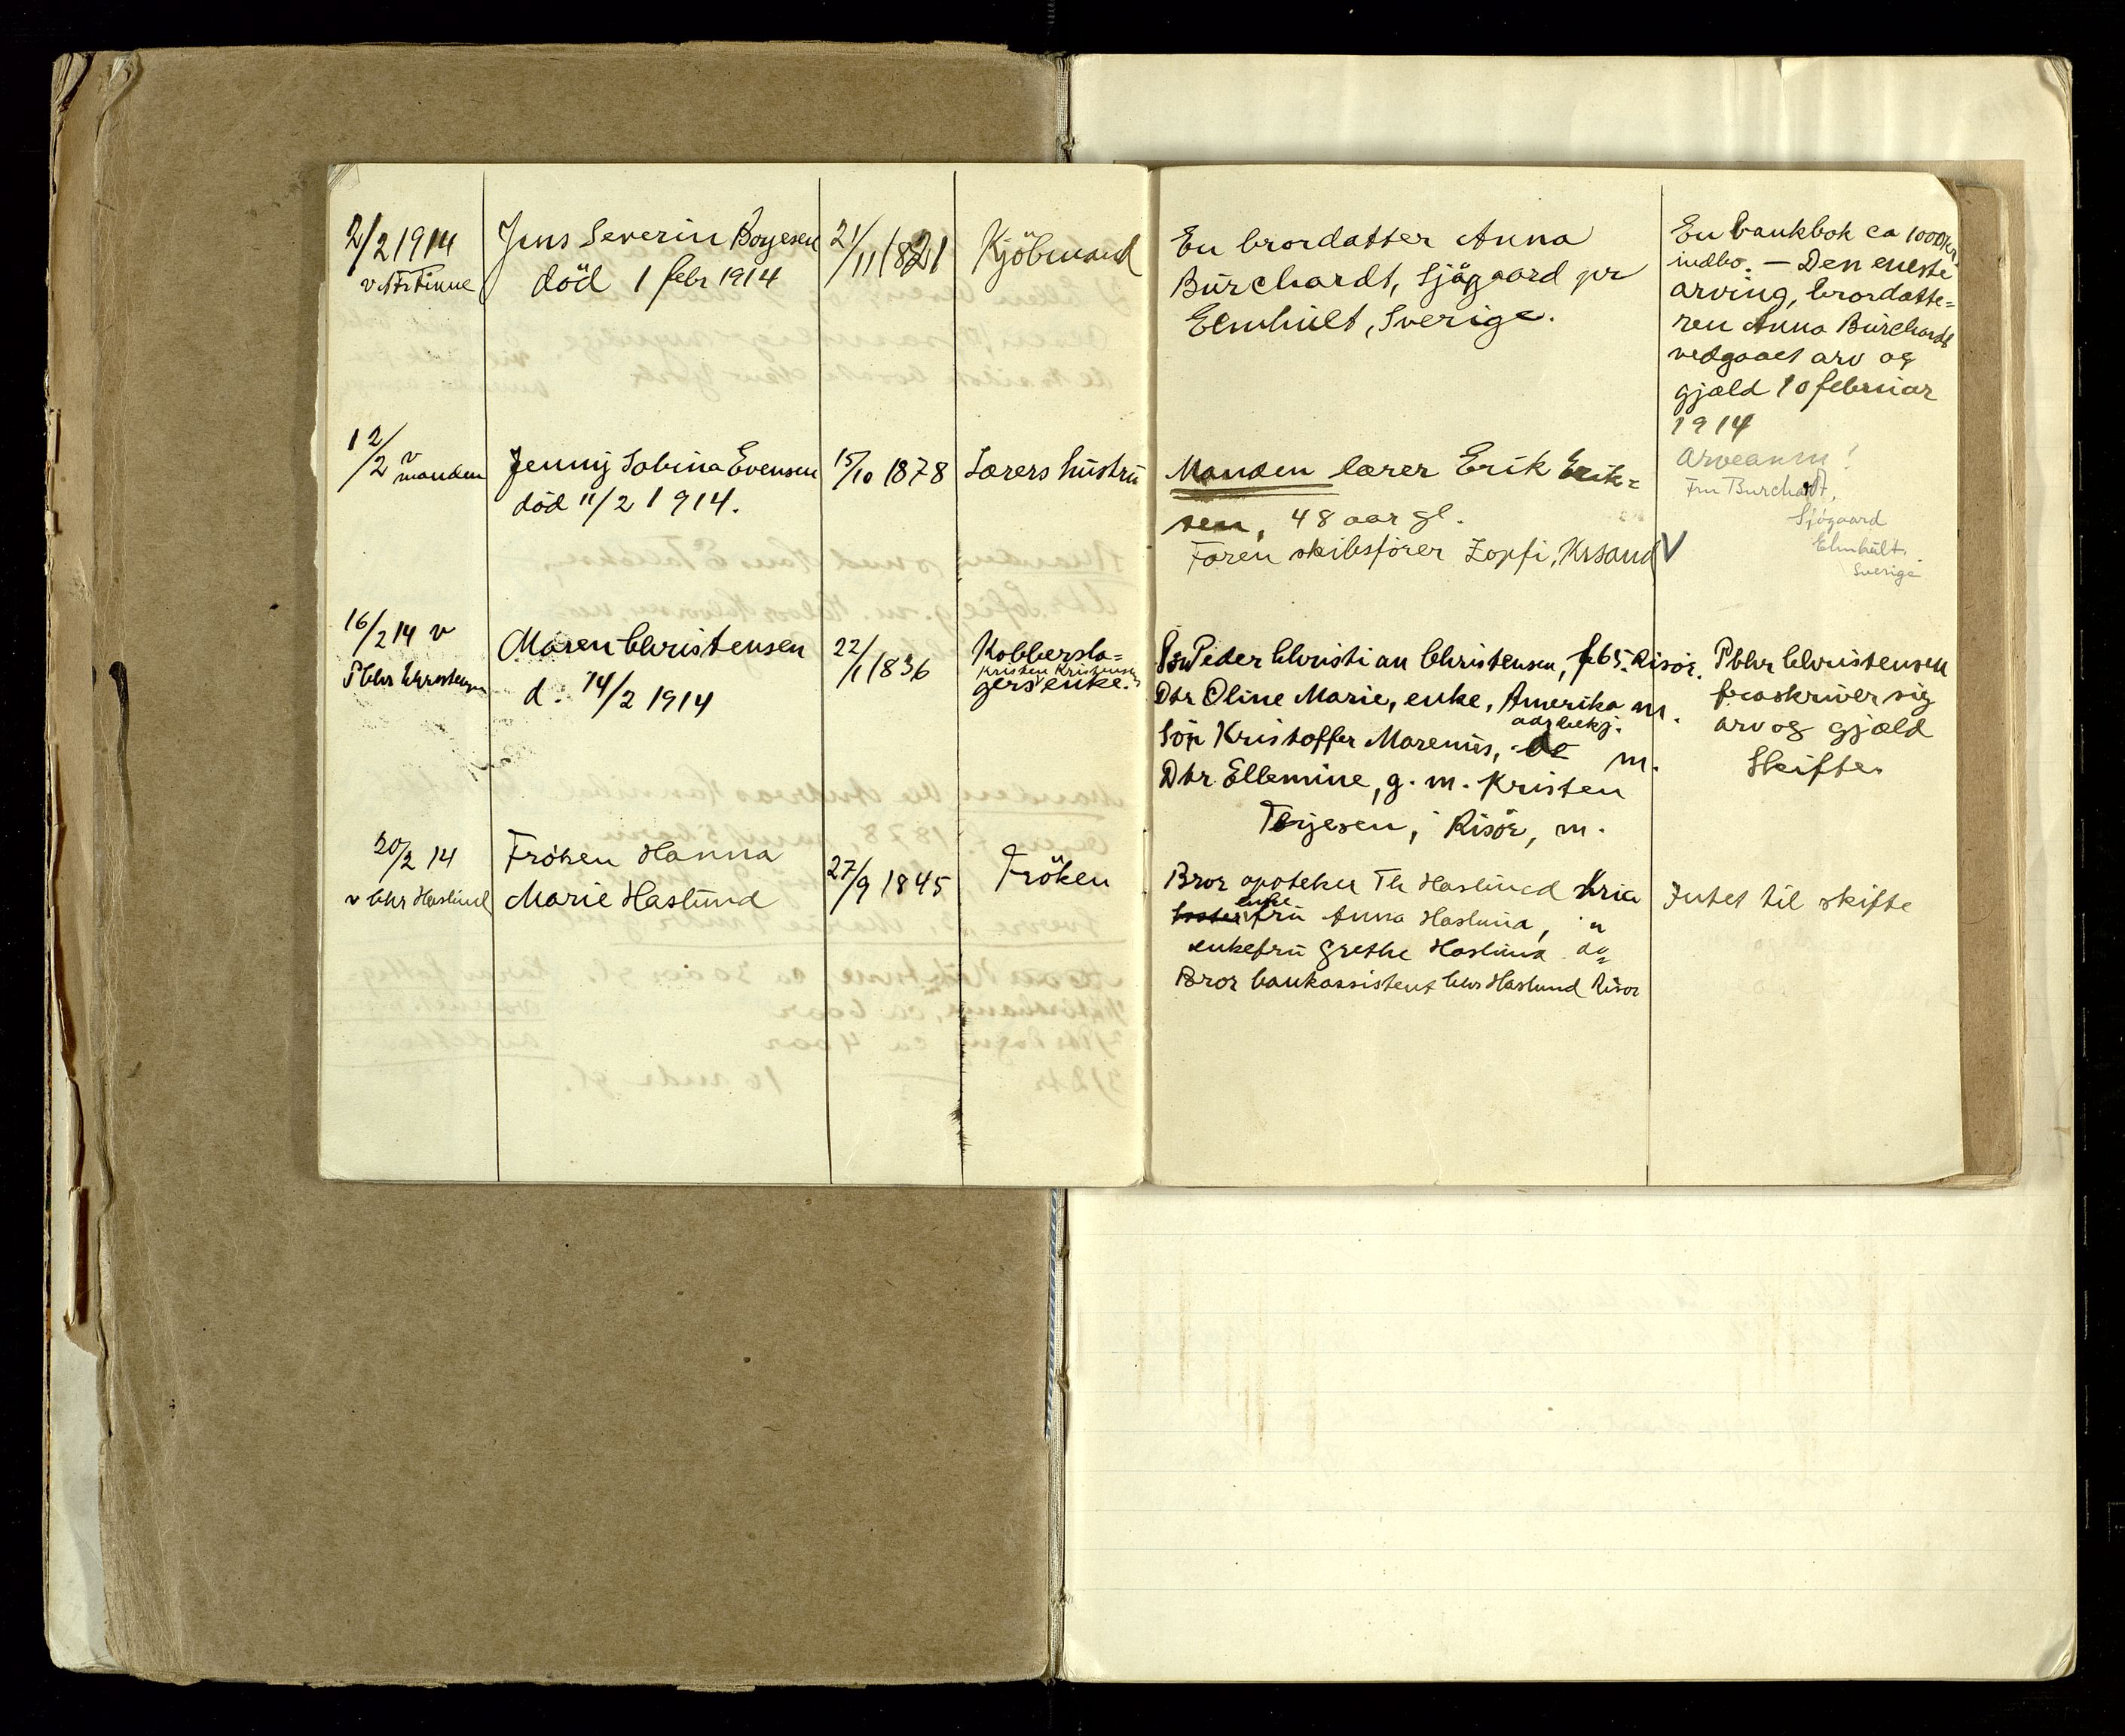 2/2 1914
Jens Severin Boyesen
21/11 1821
Kjöbmand
En brordatter Anna
Burchardt, Sjögaard pr
Elmhult, Sverige.
En bankbok ca 1000 kr
indbo. — Den eneste
arving, brordatte=
ren Anna Burchardt
vedgaaet arv og
gjæld 10 februar
1914
v. Finne
död 1 febr 1914
Arveanm!
Fru Burchardt,
Sjögaard
Elmhült.
Sverige
12/2 v
manden
Jenny Sabina Evensen
död 11/2 1914.
15/10 1878
Lærers hustru
Manden lærer Erik Erik=
sen, 48 aar gl.
Faren skibsförer Zopfi, Krsand V
16/2 14 v
P Chr Christensen
Maren Christensen
d. 14/2 1914
22/1 1836
Kobbersla=
Kristen Kristensens
gers enke.
Sön Peder Christian Christensen, f 65. Risör.
Dtr Oline Marie, enke, Amerika m.
adr bekj.
Sön Kristoffer Marenius, do m.
Dtr Ellemine, g. m. Kristen
Terjesen, Risör, m.
P Chr Christensen
fraskriver sig
arv og gjæld
Skifte.
20/2 14
v Chr Haslund
Fröken Hanna
Marie Haslund
27/9 1845
Fröken
Bror apoteker Th Haslund Kria
enke
fru Anna Haslund, "
enkefru Grethe Haslund do
Bror bankassistent Chr Haslund Risör
Intet til skifte